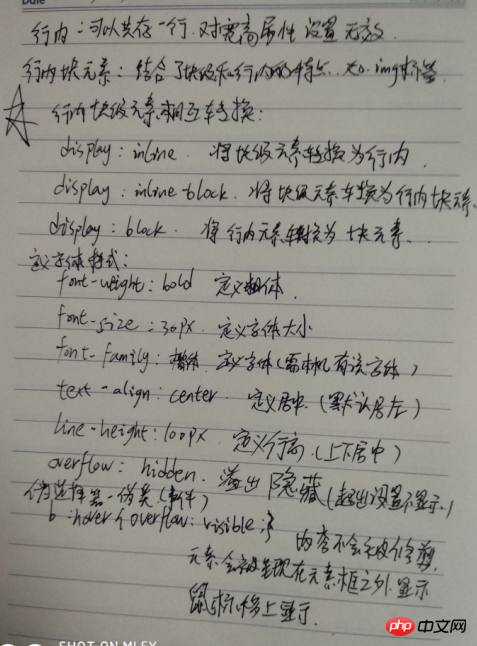 Date
行内：可以共存一行. 对宽高属性 设置 无效.
行内块元素：结合了块级和行内的特点. 如 img标签
☆ 行内 块级元素相互转换：
display：inline. 将块级元素转换为行内.
display：inline-block. 将块级元素转换为行内块元素.
display：block. 将行内元素转换为块元素.
定义字体样式：
font-weight：bold 定义粗体.
font-size：30px. 定义字体大小
font-family：楷体. 定义字体（需本机有该字体）
text-align：center. 定义居中.（默认居左）
line-height：100px. 定义行高.（上下居中）
overflow：hidden. 溢出 隐藏（超出设置不显示.）
伪选择器-伪类（事件）
:hover{overflow：visible;} 内容不会被修剪,
元素会被呈现在元素框之外.显示
鼠标移上显示.
SHOT ON MI
php 中文网